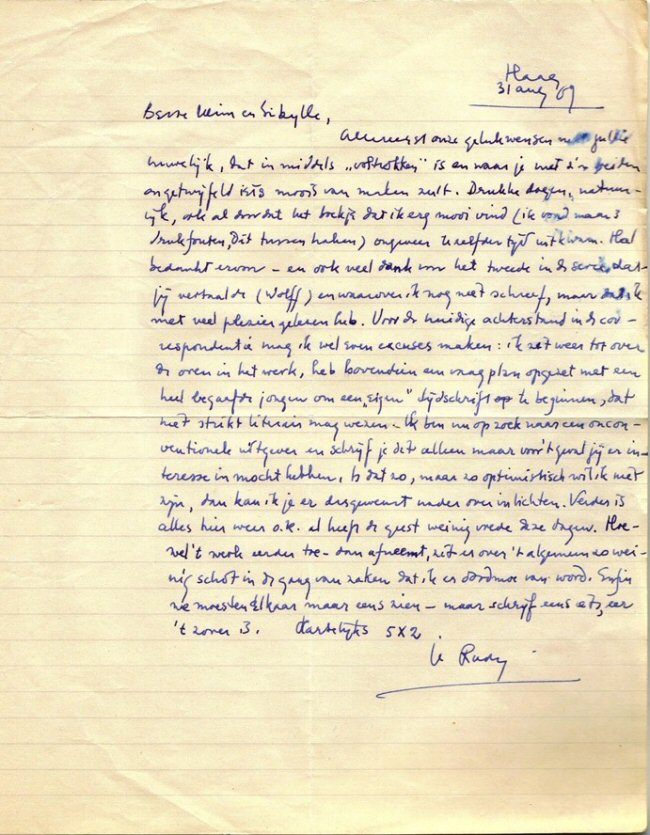 Haag
31 aug 69
Beste Wim en Sibylle,
Allereerst onze gelukwensen met jullie
huwelijk, dat inmiddels „voltrokken” is en waar je met z'n beiden
ongetwijfeld iets moois van maken zult. Drukke dagen, natuur-
lijk, ook al doordat het boekje dat ik erg mooi vind (ik vond maar 3
drukfouten, dit tussen haken) ongeveer tezelfdertijd uitkwam. Heel
bedankt ervoor – en ook veel dank voor het tweede in de serie, dat
jij vertaalde (Wolff) en waarover ik nog niet schreef, maar dat ik
met veel plezier gelezen heb. Voor de huidige achterstand in de cor-
respondentie mag ik wel even excuses maken: ik zit weer tot over
de oren in het werk, heb bovendien een vaag plan opgezet met een
heel begaafde jongen om een „eigen” tijdschrift op te beginnen, dat
niet strikt literair mag wezen. Ik ben nu op zoek naar een oncon-
ventionele uitgever en schrijf je dit alleen maar voor't geval jij er in-
teresse in mocht hebben. Is dat zo, maar zo optimistisch wil ik niet
zijn, dan kan ik je er desgewenst nader over inlichten. Verder is
alles hier weer o.k. al heeft de geest weinig vrede deze dagen. Hoe-
wel 't werk eerder toe- dan afneemt, zit er over 't algemeen zo wei-
nig schot in de gang van zaken dat ik er doodmoe van word. Enfin
we moesten elkaar maar eens zien – maar schrijf eens iets, eer
't zover is. Hartelijks 5 x 2
Rudy